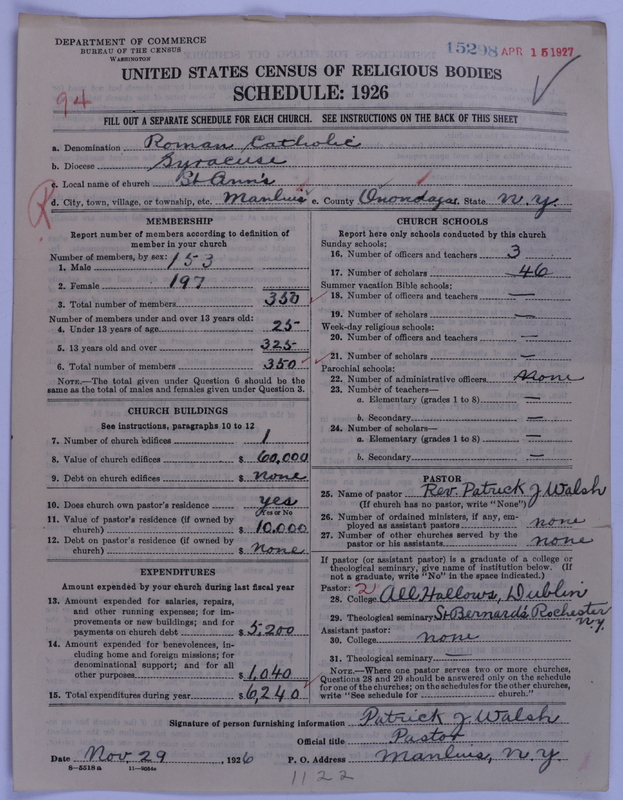 DEPARTMENT OF COMMERCE
BUREAU OF THE CENSUS
WASHINGTON
15298 APR 15 1927
UNITED STATES CENSUS OF RELIGIOUS BODIES
SCHEDULE: 1926
94
FILL OUT A SEPARATE SCHEDULE FOR EACH CHURCH. SEE INSTRUCTIONS ON THE BACK OF THIS SHEET
a. Denomination Roman Catholic
b. Diocese Syracuse
c. Local name of church St Ann's
d. City, town, village, or township, etc. Manlius e. County Onondaga f. State N.Y.
MEMBERSHIP
Report number of members according to definition of
member in your church
Number of members, by sex:
1. Male 153
2. Female 197
3. Total number of members 350
Number of members under and over 13 years old:
4. Under 13 years of age 25
5. 13 years old and over 325
6. Total number of members 350
NOTE.—The total given under Question 6 should be the
same as the total of males and females given under Question 3.
CHURCH BUILDINGS
See instructions, paragraphs 10 to 12
7. Number of church edifices 1
8. Value of church edifices $ 60,000
9. Debt on church edifices $ none
10. Does church own pastor's residence yes
Yes or No
11. Value of pastor's residence (if owned by
church) $ 10,000
12. Debt on pastor's residence (if owned by
church) $ none
EXPENDITURES
Amount expended by your church during last fiscal year
13. Amount expended for salaries, repairs,
and other running expense; for im-
provements or new buildings; and for
payments on church debt $ 5,200
14. Amount expended for benevolences, in-
cluding home and foreign missions; for
denominational support; and for all
other purposes $ 1,040
15. Total expenditures during year $ 6,240
CHURCH SCHOOLS
Report here only schools conducted by this church
Sunday schools:
16. Number of officers and teachers 3
17. Number of scholars 46
Summer vacation Bible schools:
18. Number of officers and teachers —
19. Number of scholars —
Week-day religious schools:
20. Number of officers and teachers —
21. Number of scholars —
Parochial schools:
22. Number of administrative officers none
23. Number of teachers—
a. Elementary (grades 1 to 8) —
b. Secondary —
24. Number of scholars—
a. Elementary (grades 1 to 8) —
b. Secondary —
PASTOR
25. Name of pastor Rev. Patrick J Walsh
(If church has no pastor, write "None")
26. Number of ordained ministers, if any, em-
ployed as assistant pastors none
27. Number of other churches served by the
pastor or his assistants none
If pastor (or assistant pastor) is a graduate of a college or
theological seminary, give name of institution below. (If
not a graduate, write "No" in the space indicated.)
Pastor: 2
28. College All Hallows, Dublin
29. Theological seminary St Bernard's Rochester
N.Y.
Assistant pastor:
30. College none
31. Theological seminary —
NOTE.—Where one pastor serves two or more churches,
Questions 28 and 29 should be answered only on the schedule
for one of the churches; on the schedules for the other churches,
write "See schedule for church."
Signature of person furnishing information Patrick J Walsh
Official title Pastor
Date Nov 29, 1926 P. O. Address Manlius, N.Y.
8—5518a
1122